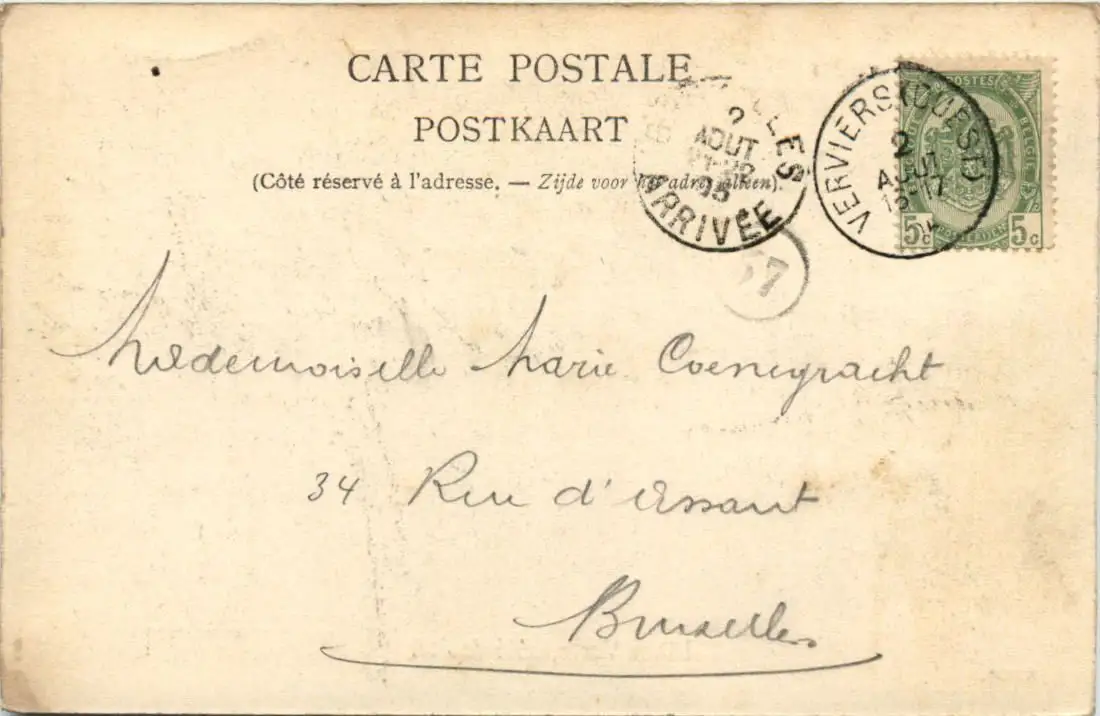 CARTE POSTALE
POSTKAART
(Côté réservé à l'adresse. — Zijde voor het adres alleen).
AOUT
ARRIVÉE
VERVIERS (OUEST)
POSTES
BELGIE
5c 5c
37
Mademoiselle Marie Coenegracht
34 Rue d'Assaut
Bruxelles